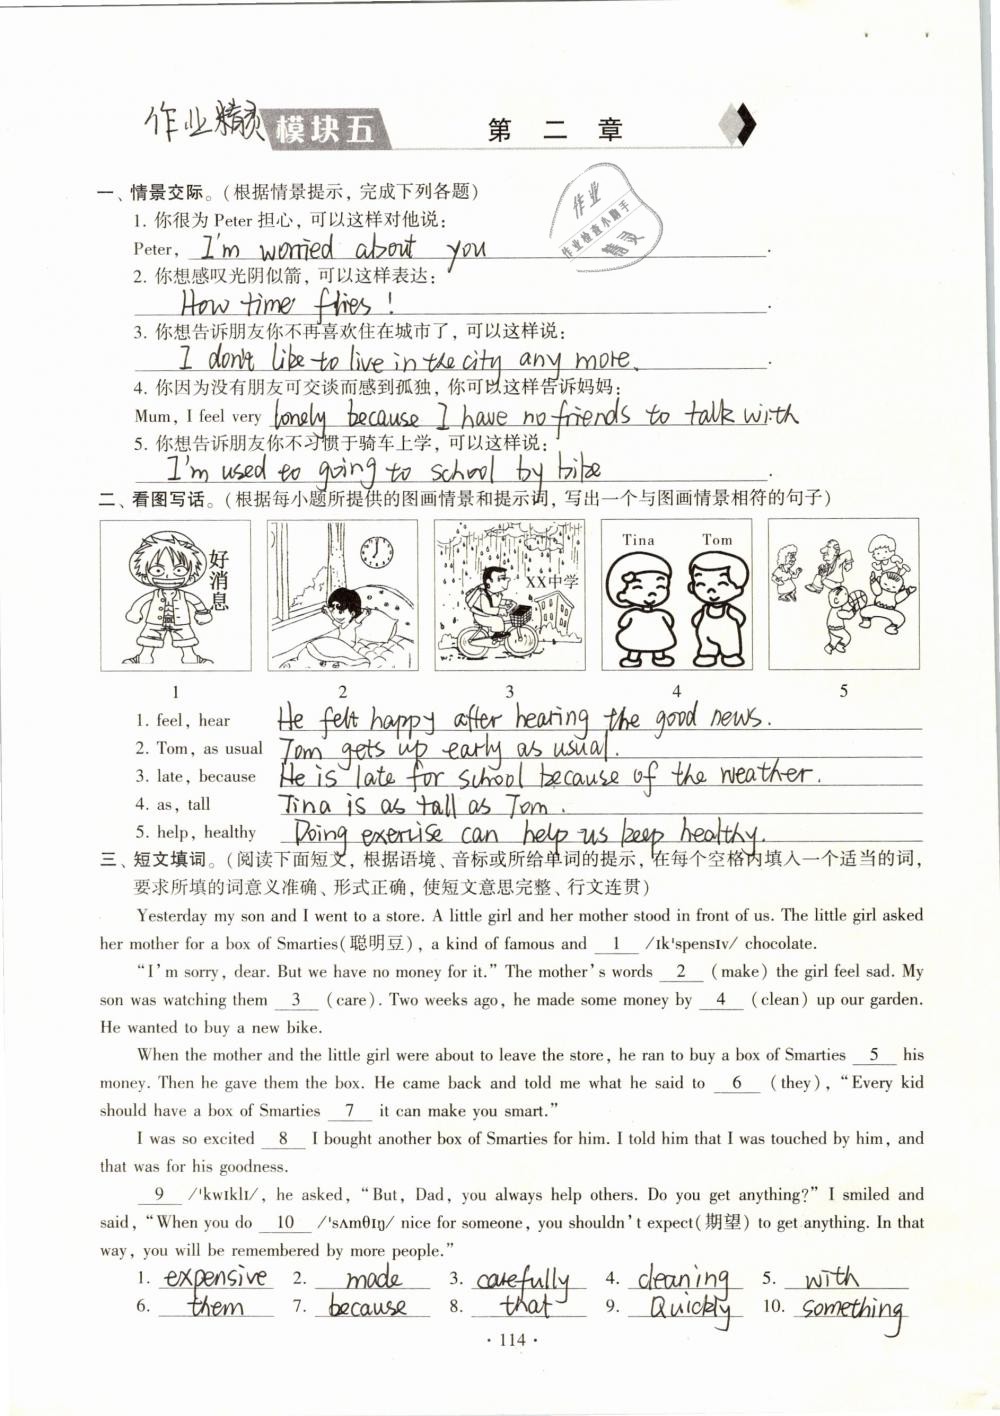 作业精灵 模块五 第 二 章
一、情景交际。(根据情景提示，完成下列各题)
作业
作业检查小助手
精灵
1. 你很为 Peter 担心，可以这样对他说：
Peter, I'm worried about you.
2. 你想感叹光阴似箭，可以这样表达：
How time flies!.
3. 你想告诉朋友你不再喜欢住在城市了，可以这样说：
I don't like to live in the city any more.
4. 你因为没有朋友可交谈而感到孤独，你可以这样告诉妈妈：
Mum, I feel very lonely because I have no friends to talk with
5. 你想告诉朋友你不习惯于骑车上学，可以这样说：
I'm used to going to school by bike.
二、看图写话。(根据每小题所提供的图画情景和提示词，写出一个与图画情景相符的句子)
好消息
XX中学
Tina Tom
1 2 3 4 5
1. feel, hear He felt happy after hearing the good news.
2. Tom, as usual Tom gets up early as usual.
3. late, because He is late for school because of the weather.
4. as, tall Tina is as tall as Tom.
5. help, healthy Doing exerise can help us keep healthy.
三、短文填词。(阅读下面短文，根据语境、音标或所给单词的提示，在每个空格内填入一个适当的词，
要求所填的词意义准确、形式正确，使短文意思完整、行文连贯)
Yesterday my son and I went to a store. A little girl and her mother stood in front of us. The little girl asked
her mother for a box of Smarties(聪明豆), a kind of famous and 1 /ɪk'spensɪv/ chocolate.
"I'm sorry, dear. But we have no money for it." The mother's words 2 (make) the girl feel sad. My
son was watching them 3 (care). Two weeks ago, he made some money by 4 (clean) up our garden.
He wanted to buy a new bike.
When the mother and the little girl were about to leave the store, he ran to buy a box of Smarties 5 his
money. Then he gave them the box. He came back and told me what he said to 6 (they), "Every kid
should have a box of Smarties 7 it can make you smart."
I was so excited 8 I bought another box of Smarties for him. I told him that I was touched by him, and
that was for his goodness.
9 /'kwɪklɪ/, he asked, "But, Dad, you always help others. Do you get anything?" I smiled and
said, "When you do 10 /'sʌmθɪŋ/ nice for someone, you shouldn't expect(期望) to get anything. In that
way, you will be remembered by more people."
1. expensive 2. made 3. carefully 4. cleaning 5. with
6. them 7. because 8. that 9. Quickly 10. something
· 114 ·